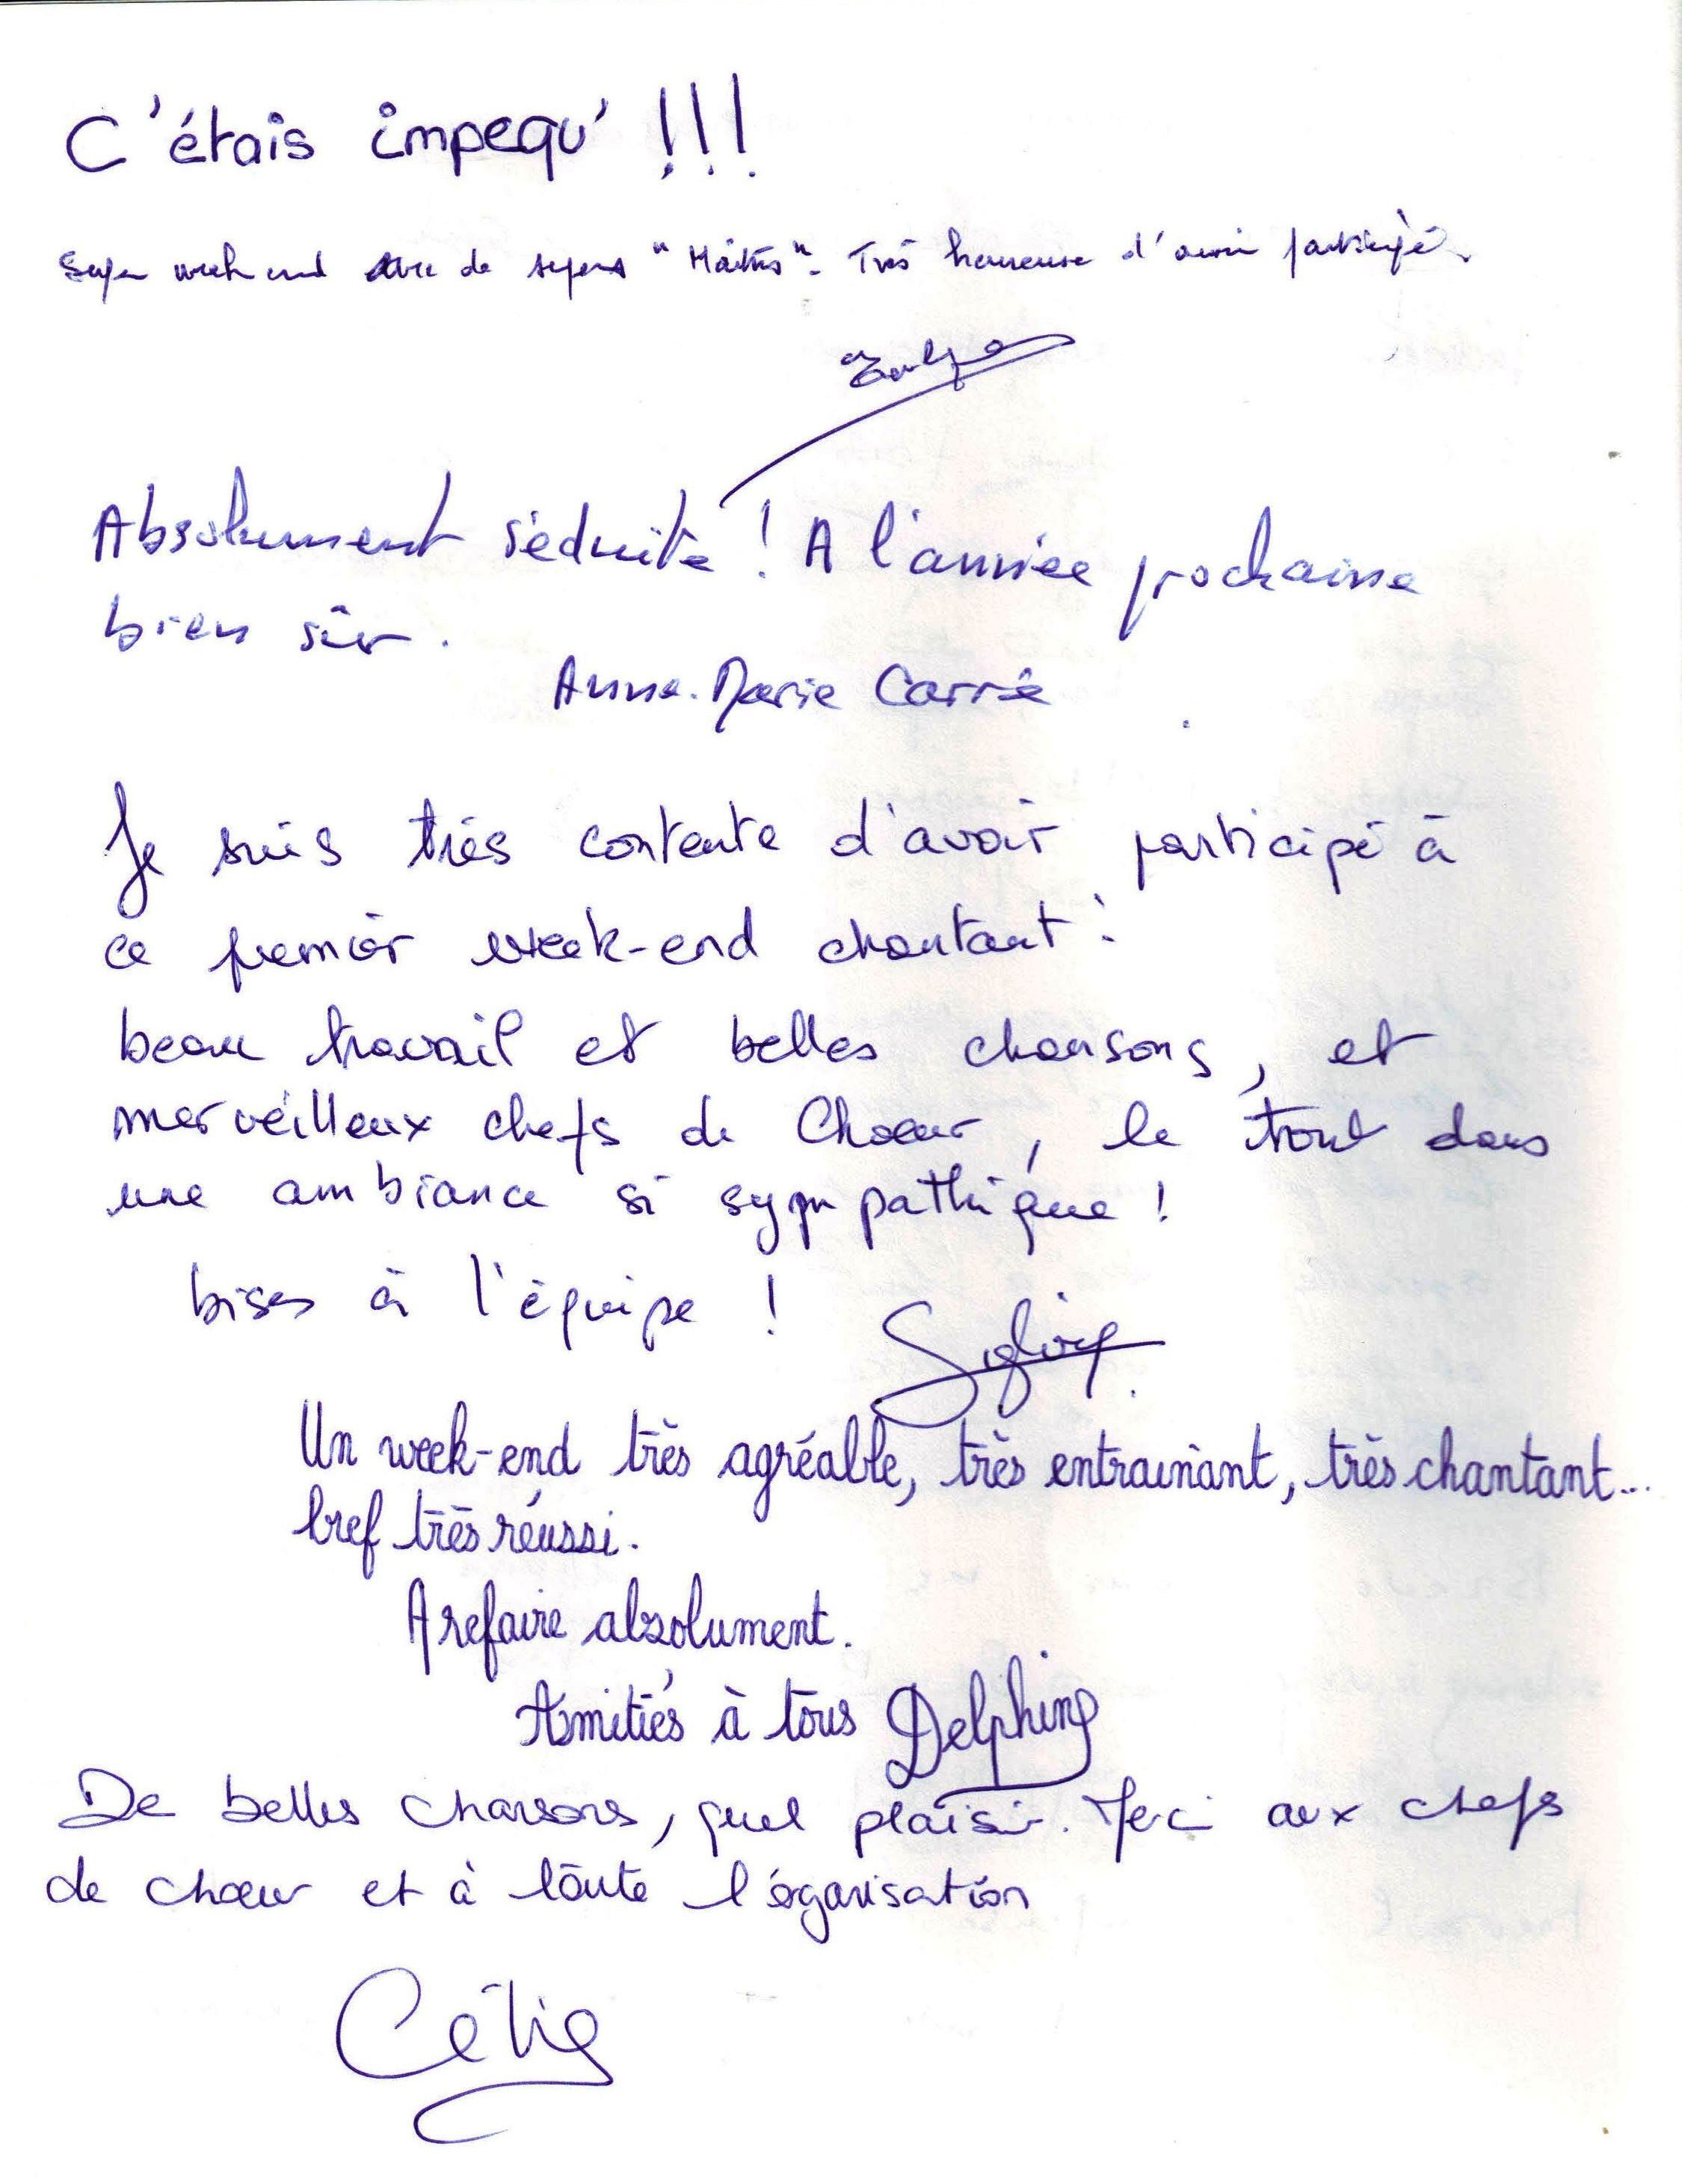 C'étais impequ' !!!
Super week end avec de supers "Maîtres". Très heureuse d'avoir participé.
Absolument séduite ! A l'année prochaine
bien sûr.
Anne-Marie Carré
Je suis très contente d'avoir participé à
ce premier week-end chantant :
beau travail et belles chansons, et
merveilleux chefs de Choeur, le tout dans
une ambiance si sympathique !
bises à l'équipe !
Sylvie
Un week-end très agréable, très entrainant, très chantant...
bref très réussi.
A refaire absolument.
Amitiés à tous Delphine
De belles chansons, quel plaisir. Merci aux chefs
de chœur et à toute l'organisation